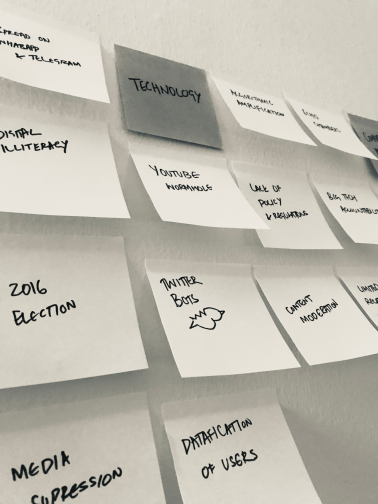 SPREAD ON
WHATSAPP
& TELEGRAM
TECHNOLOGY
ALGORITHMIC
AMPLIFICATION
ECHO
CHAMBERS
DIGITAL
ILLITERACY
YOUTUBE
WORMHOLE
LACK OF
POLICY
& REGULATIONS
BIG TECH
2016
ELECTION
TWITTER
BOTS
CONTENT
MODERATION
MEDIA
SUPRESSION
DATAFICATION
OF USERS